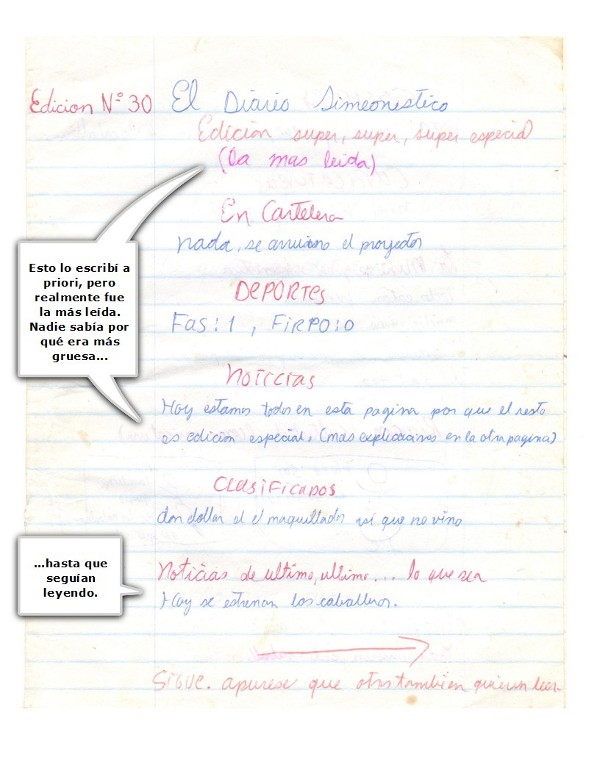 Edicion Nº 30 El Diario Simeonestico
Edición super, super, super especial
(La mas leida)
En Cartelera
nada, se arruino el proyector
DEPORTES
FAS: 1, FIRPO: 0
Noticias
Hoy estamos todos en esta pagina por que el resto
es edicion especial, (mas explicaciones en la otra pagina)
Clasificados
don dollar el maquillador asi que no vino
Noticias de ultimo, ultimo... lo que sea
Hoy se estrenan los caballeros.
Sigue. apurese que otros tambien quieren leer
Esto lo escribí a
priori, pero
realmente fue
la más leída.
Nadie sabía por
qué era más
gruesa...
...hasta que
seguían
leyendo.